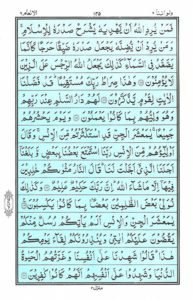 ولو اننا ٨ ١٣٥ الانعام ٦
فَمَنْ يُّرِدِ اللّٰهُ اَنْ يَّهْدِيَهٗ يَشْرَحْ صَدْرَهٗ لِلْاِسْلَامِ
وَمَنْ يُّرِدْ اَنْ يُّضِلَّهٗ يَجْعَلْ صَدْرَهٗ ضَيِّقًا حَرَجًا كَاَنَّمَا
يَصَّعَّدُ فِي السَّمَآءِ كَذٰلِكَ يَجْعَلُ اللّٰهُ الرِّجْسَ عَلَى الَّذِيْنَ
لَا يُؤْمِنُوْنَ وَهٰذَا صِرَاطُ رَبِّكَ مُسْتَقِيْمًا قَدْ فَصَّلْنَا
الْاٰيٰتِ لِقَوْمٍ يَّذَّكَّرُوْنَ لَهُمْ دَارُ السَّلٰمِ عِنْدَ رَبِّهِمْ
وَهُوَ وَلِيُّهُمْ بِمَا كَانُوْا يَعْمَلُوْنَ وَيَوْمَ يَحْشُرُهُمْ
جَمِيْعًا يٰمَعْشَرَ الْجِنِّ قَدِ اسْتَكْثَرْتُمْ مِّنَ الْاِنْسِ وَقَالَ
اَوْلِيٰٓؤُهُمْ مِّنَ الْاِنْسِ رَبَّنَا اسْتَمْتَعَ بَعْضُنَا بِبَعْضٍ وَّبَلَغْنَا
اَجَلَنَا الَّذِيْٓ اَجَّلْتَ لَنَا قَالَ النَّارُ مَثْوٰىكُمْ خٰلِدِيْنَ
فِيْهَآ اِلَّا مَا شَآءَ اللّٰهُ اِنَّ رَبَّكَ حَكِيْمٌ عَلِيْمٌ وَكَذٰلِكَ
نُوَلِّيْ بَعْضَ الظّٰلِمِيْنَ بَعْضًۢا بِمَا كَانُوْا يَكْسِبُوْنَ
يٰمَعْشَرَ الْجِنِّ وَالْاِنْسِ اَلَمْ يَاْتِكُمْ رُسُلٌ مِّنْكُمْ
يَقُصُّوْنَ عَلَيْكُمْ اٰيٰتِيْ وَيُنْذِرُوْنَكُمْ لِقَآءَ يَوْمِكُمْ
هٰذَا قَالُوْا شَهِدْنَا عَلٰٓى اَنْفُسِنَا وَغَرَّتْهُمُ الْحَيٰوةُ
الدُّنْيَا وَشَهِدُوْا عَلٰٓى اَنْفُسِهِمْ اَنَّهُمْ كَانُوْا كٰفِرِيْنَ
منزل٢